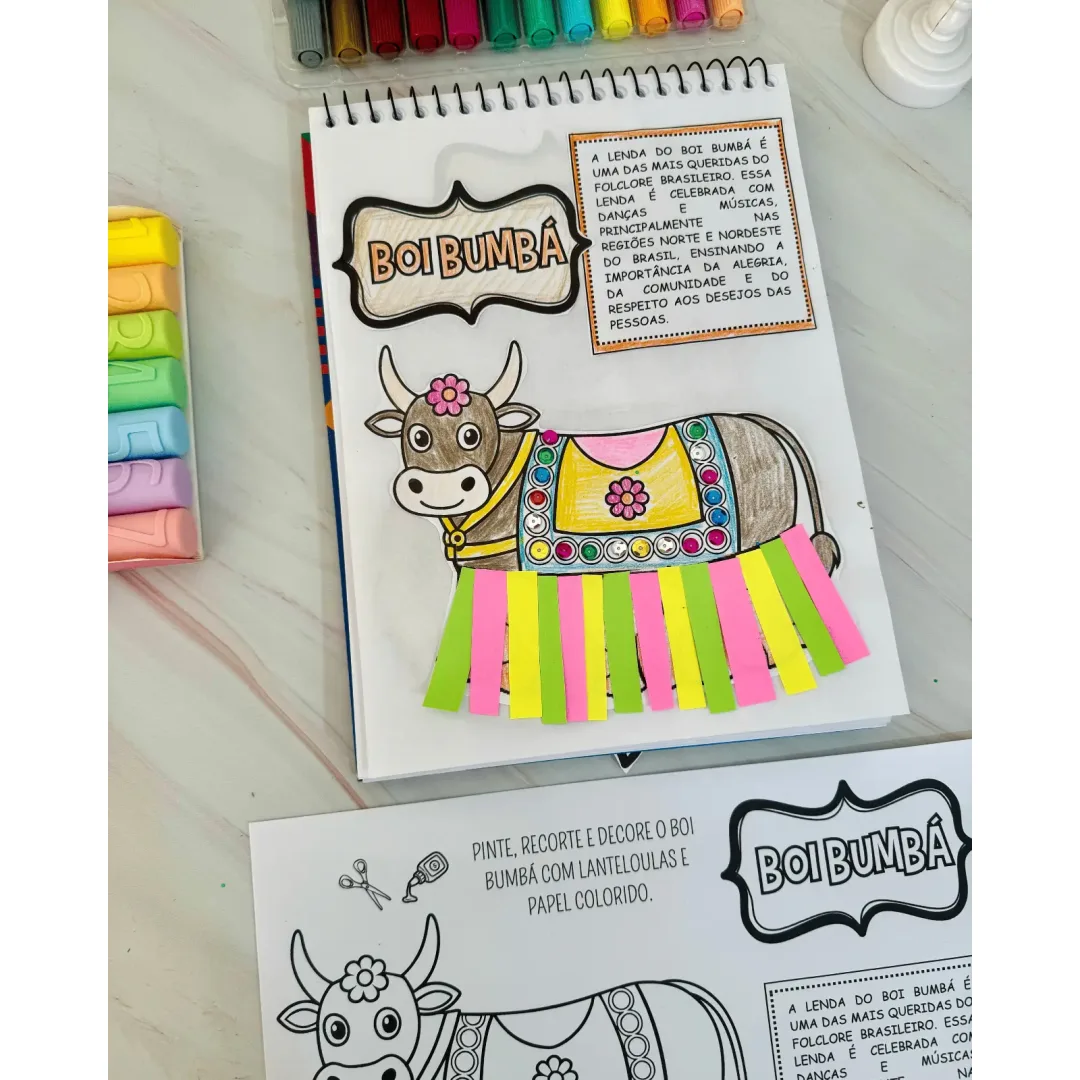 BOI BUMBÁ
A LENDA DO BOI BUMBÁ É
UMA DAS MAIS QUERIDAS DO
FOLCLORE BRASILEIRO. ESSA
LENDA É CELEBRADA COM
DANÇAS E MÚSICAS,
PRINCIPALMENTE NAS
REGIÕES NORTE E NORDESTE
DO BRASIL, ENSINANDO A
IMPORTÂNCIA DA ALEGRIA,
DA COMUNIDADE E DO
RESPEITO AOS DESEJOS DAS
PESSOAS.
PINTE, RECORTE E DECORE O BOI
BUMBÁ COM LANTELOULAS E
PAPEL COLORIDO.
BOI BUMBÁ
A LENDA DO BOI BUMBÁ É
UMA DAS MAIS QUERIDAS DO
FOLCLORE BRASILEIRO. ESSA
LENDA É CELEBRADA COM
DANÇAS E MÚSICAS